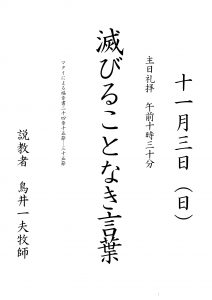 十一月三日（日）
主日礼拝　午前十時三十分
滅びることなき言葉
マタイによる福音書二十四章十五節―三十五節
説教者　鳥井一夫牧師